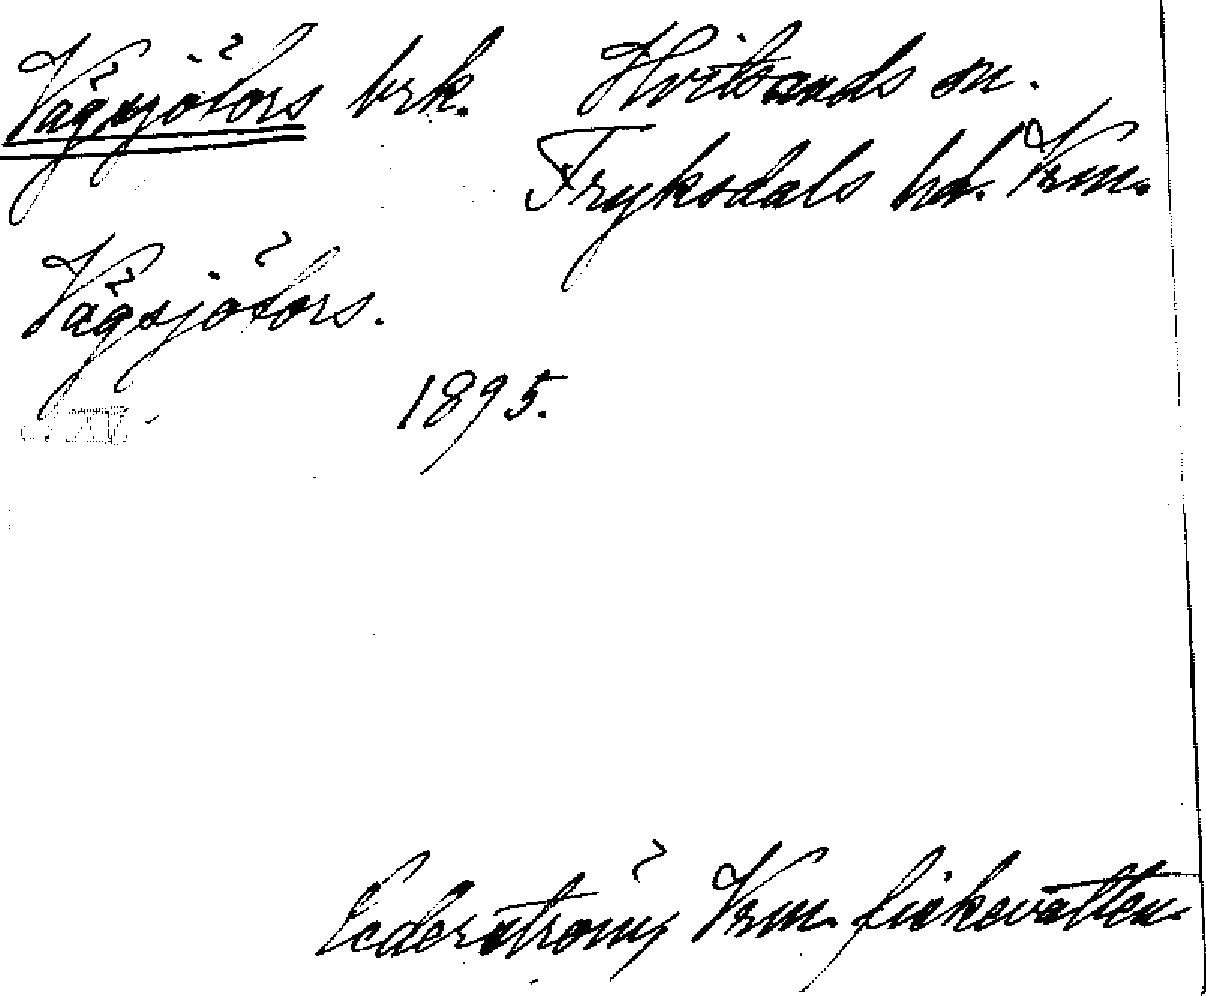 Vägsjöfors brk. Hvitsands sn.
Fryksdals hd. Vrm.
Vägsjöfors.
1895.
Cederström, Vrm. fiskevatten.